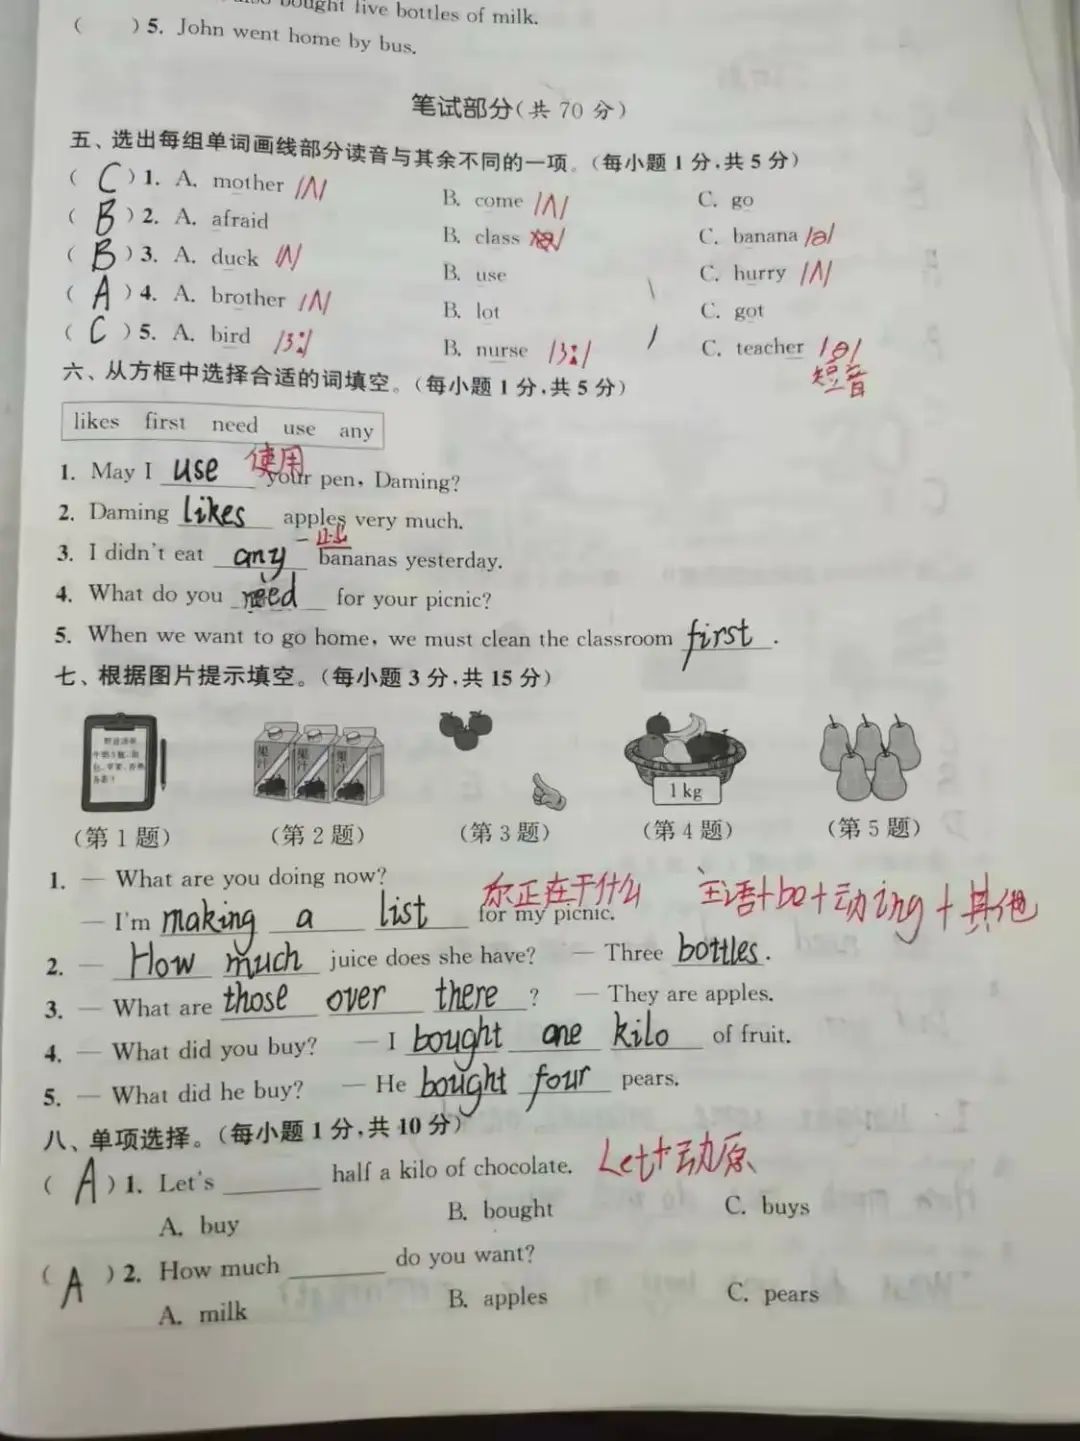 bought five bottles of milk.
( )5. John went home by bus.
笔试部分(共 70 分)
五、选出每组单词画线部分读音与其余不同的一项。(每小题 1 分,共 5 分)
( C )1. A. mother /ʌ/ B. come /ʌ/ C. go
( B )2. A. afraid B. class C. banana /ə/
( B )3. A. duck /ʌ/ B. use C. hurry /ʌ/
( A )4. A. brother /ʌ/ B. lot C. got
( C )5. A. bird /ɜ:/ B. nurse /ɜ:/ C. teacher /ə/
短音
六、从方框中选择合适的词填空。(每小题 1 分,共 5 分)
likes first need use any
1. May I use your pen, Daming? 使用
2. Daming likes apples very much.
一些
3. I didn't eat any bananas yesterday.
4. What do you need for your picnic?
5. When we want to go home, we must clean the classroom first.
七、根据图片提示填空。(每小题 3 分,共 15 分)
果汁 果汁 果汁
1 kg
(第 1 题) (第 2 题) (第 3 题) (第 4 题) (第 5 题)
1. — What are you doing now? 你正在干什么 主语+be+动ing+其他
— I'm making a list for my picnic.
2. — How much juice does she have? — Three bottles.
3. — What are those over there? — They are apples.
4. — What did you buy? — I bought one kilo of fruit.
5. — What did he buy? — He bought four pears.
八、单项选择。(每小题 1 分,共 10 分)
( A )1. Let's ______ half a kilo of chocolate. Let+动原
A. buy B. bought C. buys
( A )2. How much ______ do you want?
A. milk B. apples C. pears